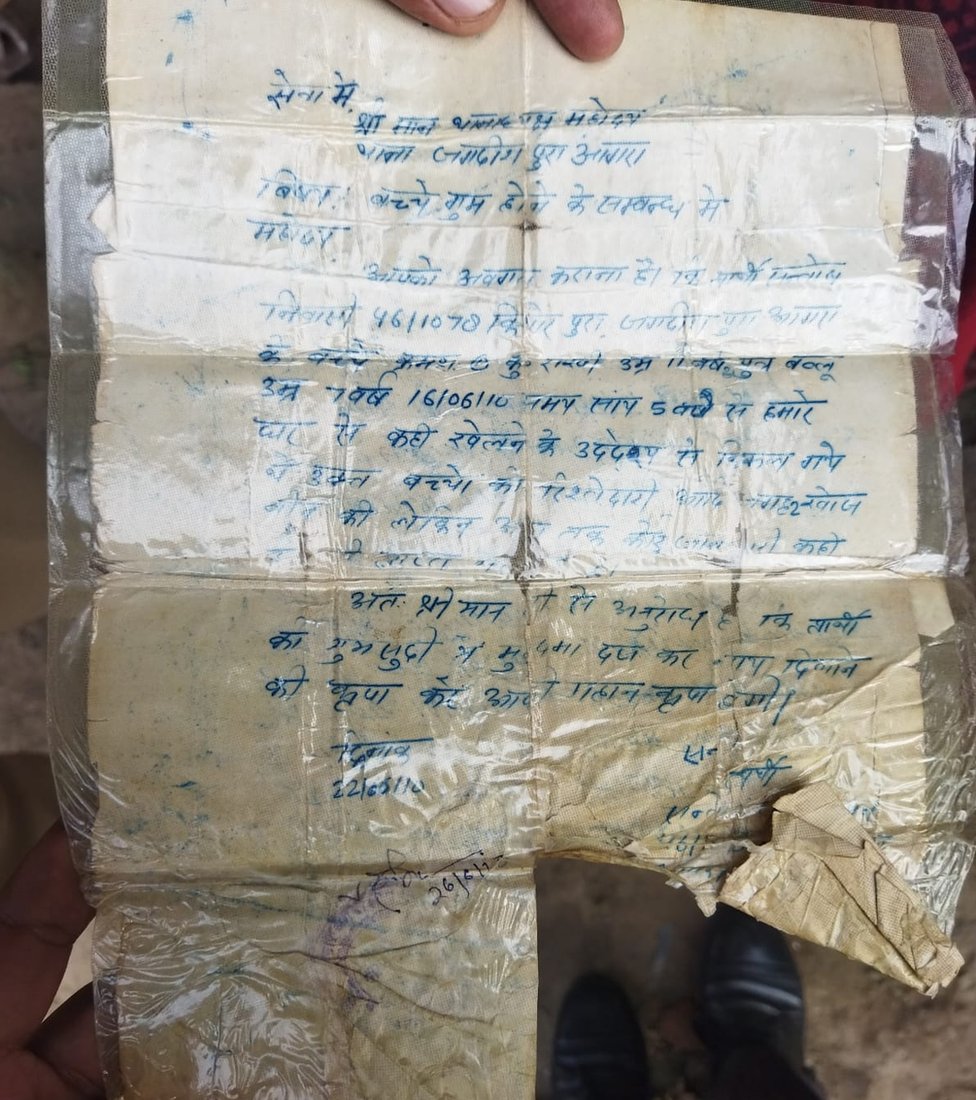 सेवा में,
श्री मान थानाध्यक्ष महोदय
थाना जगदीश पुरा आगरा
विषय: बच्चे गुम होने के सम्बन्ध में
महोदय
आपको अवगत कराना है। कि प्रार्थी सन्तोष
निवासी 46/107 किशोर पुरा जगदीश पुरा आगरा
के बच्चे क्रमशः कु० राखी उम्र 11 वर्ष पुत्र बब्लू
उम्र 7 वर्ष 16/06/10 समय सांय 5 बजे से हमारे
घर से कहीं खेलने के उद्देश्य से निकल गये
थे उक्त बच्चो को रिश्तेदारी जगह2 खोज
बीन की लेकिन आज तक कोई कही
अतः श्री मान से अनुरोध है कि प्रार्थी
की गुमसुदी में दर्ज कर दिलाने
की कृपा करें कृपा होगी।
दिनांक
22/06/10
26/6/1